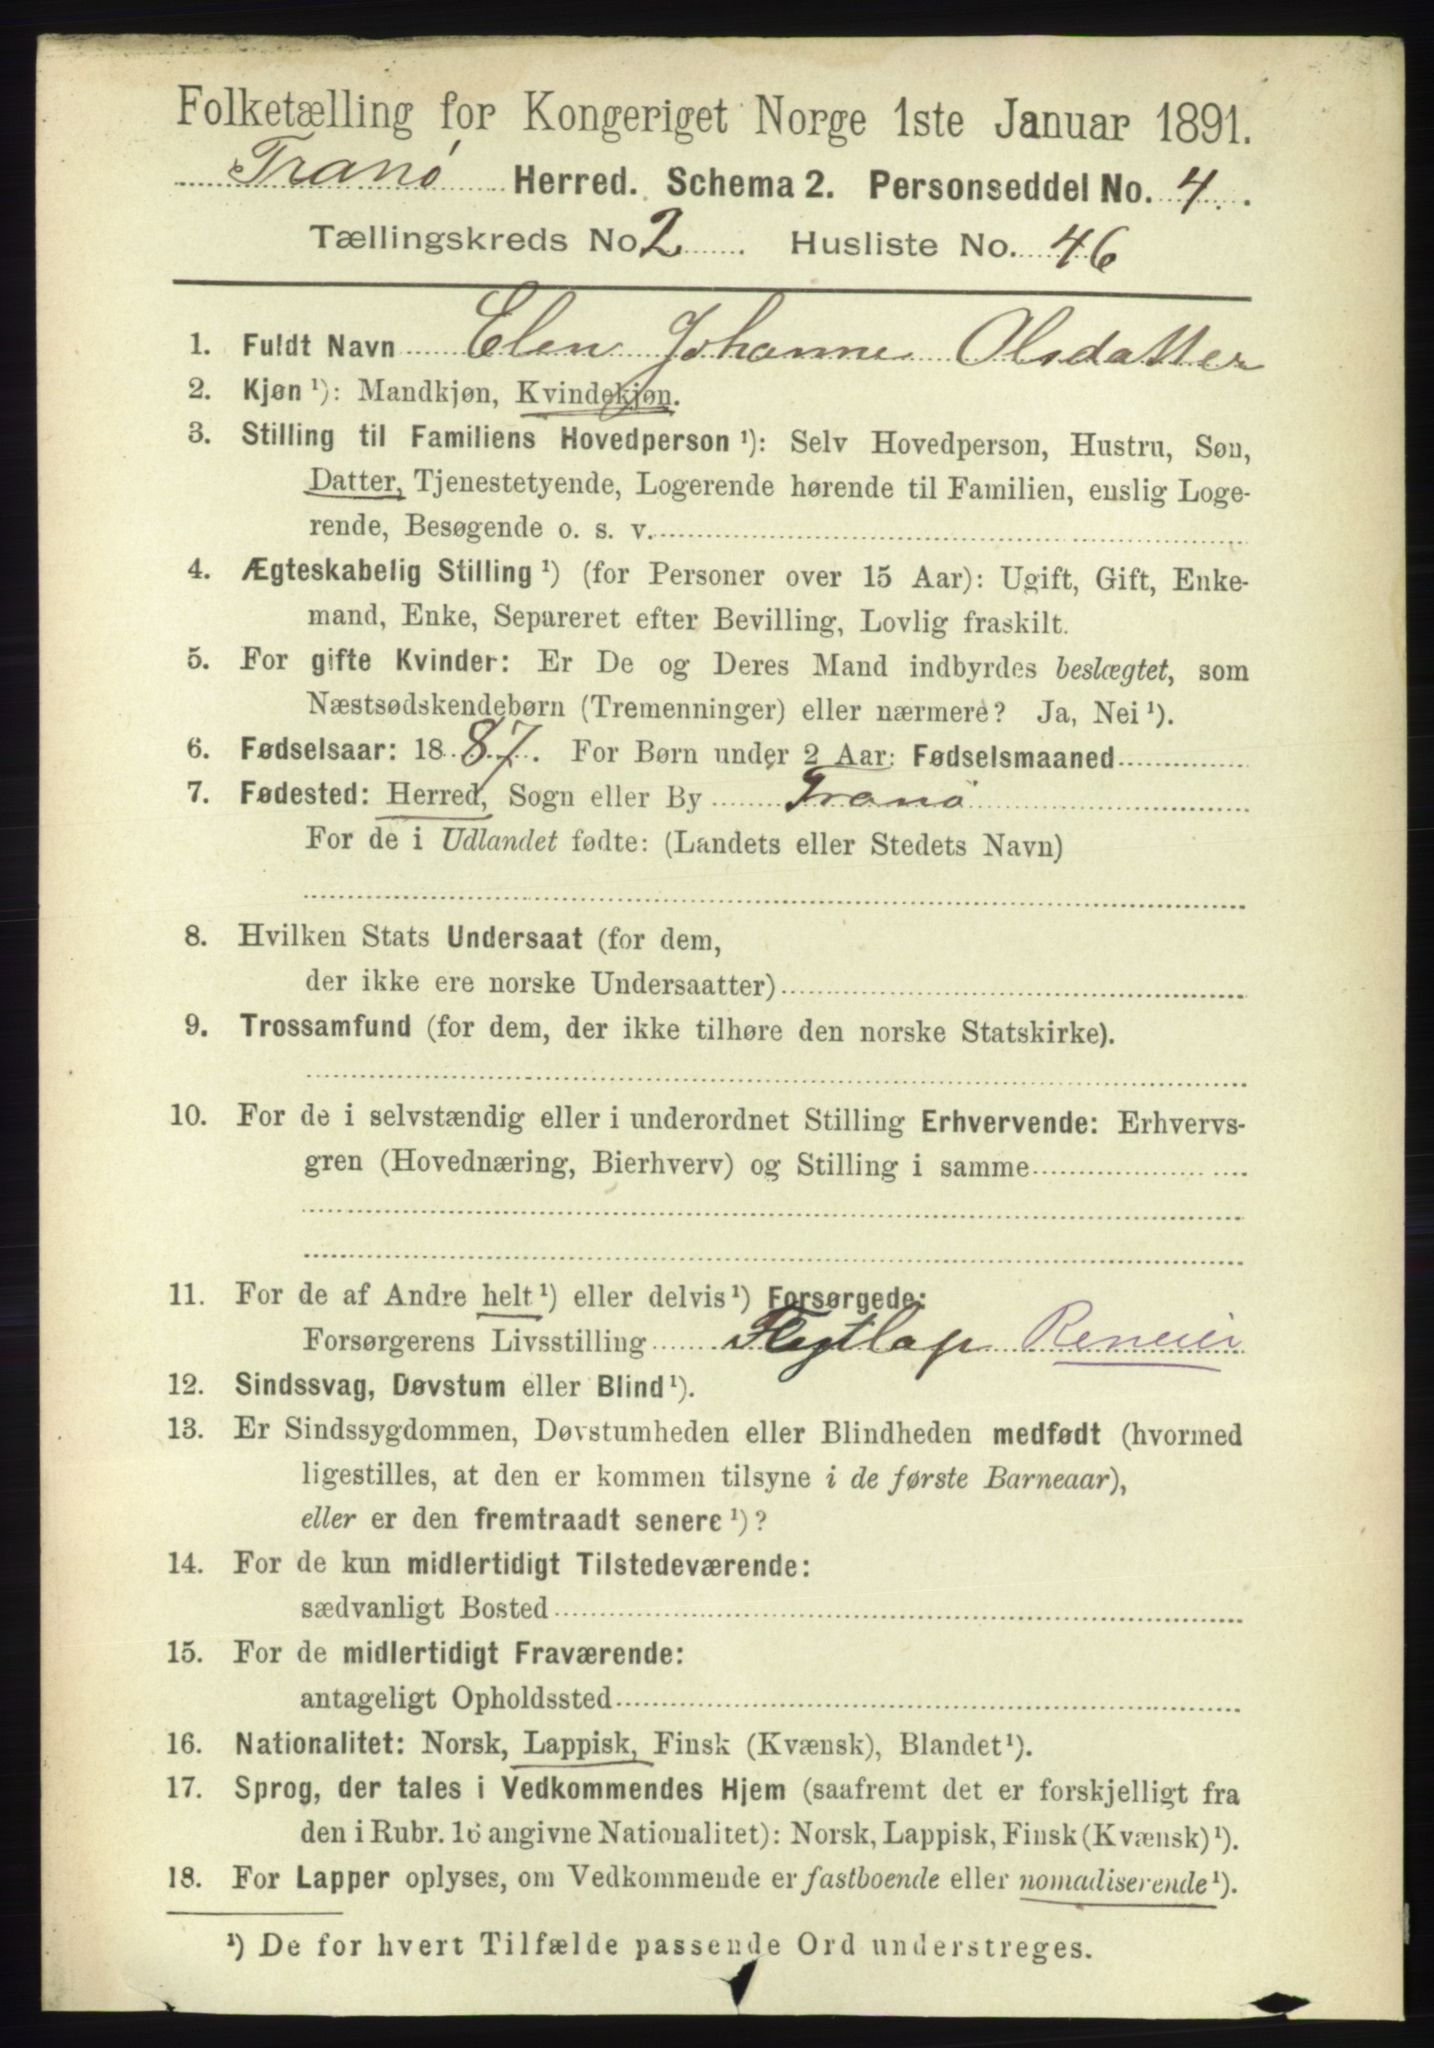 Folketælling for Kongeriget Norge 1ste Januar 1891.
Tranø Herred. Schema 2. Personseddel No. 4.
Tællingskreds No. 2. Husliste No. 46
1. Fuldt Navn Elen Johanne Olsdatter
2. Kjøn ¹): Mandkjøn, Kvindekjøn.
3. Stilling til Familiens Hovedperson ¹): Selv Hovedperson, Hustru, Søn,
Datter, Tjenestetyende, Logerende hørende til Familien, enslig Loge-
rende, Besøgende o. s. v.
4. Ægteskabelig Stilling ¹) (for Personer over 15 Aar): Ugift, Gift, Enke-
mand, Enke, Separeret efter Bevilling, Lovlig fraskilt.
5. For gifte Kvinder: Er De og Deres Mand indbyrdes beslægtet, som
Næstsødskendebørn (Tremenninger) eller nærmere? Ja, Nei ¹).
6. Fødselsaar: 1887. For Børn under 2 Aar: Fødselsmaaned
7. Fødested: Herred, Sogn eller By Tranø
For de i Udlandet fødte: (Landets eller Stedets Navn)
8. Hvilken Stats Undersaat (for dem,
der ikke ere norske Undersaatter)
9. Trossamfund (for dem, der ikke tilhøre den norske Statskirke).
10. For de i selvstændig eller i underordnet Stilling Erhvervende: Erhvervs-
gren (Hovednæring, Bierhverv) og Stilling i samme
11. For de af Andre helt ¹) eller delvis ¹) Forsørgede:
Forsørgerens Livsstilling Flytlap Reneier
12. Sindssvag, Døvstum eller Blind ¹).
13. Er Sindssygdommen, Døvstumheden eller Blindheden medfødt (hvormed
ligestilles, at den er kommen tilsyne i de første Barneaar),
eller er den fremtraadt senere ¹)?
14. For de kun midlertidigt Tilstedeværende:
sædvanligt Bosted
15. For de midlertidigt Fraværende:
antageligt Opholdssted
16. Nationalitet: Norsk, Lappisk, Finsk (Kvænsk), Blandet ¹).
17. Sprog, der tales i Vedkommendes Hjem (saafremt det er forskjelligt fra
den i Rubr. 16 angivne Nationalitet): Norsk, Lappisk, Finsk (Kvænsk) ¹).
18. For Lapper oplyses, om Vedkommende er fastboende eller nomadiserende ¹).
¹) De for hvert Tilfælde passende Ord understreges.